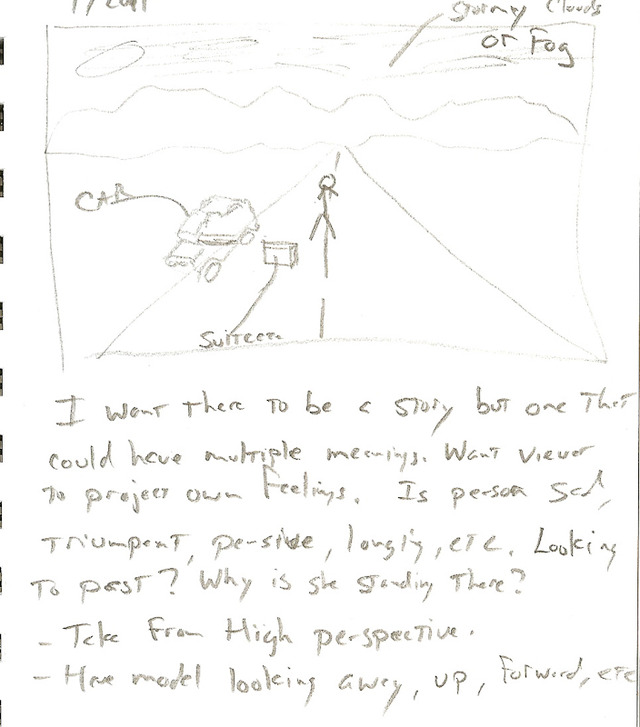 Stormy Clouds
or Fog
CAR
Suitcase
I want there to be a story but one that
could have multiple meanings. Want viewer
to project own feelings. Is person sad,
triumpant, pensive, longing, etc. Looking
to past? Why is she standing there?
- Take from High perspective.
- Have model looking away, up, forward, etc